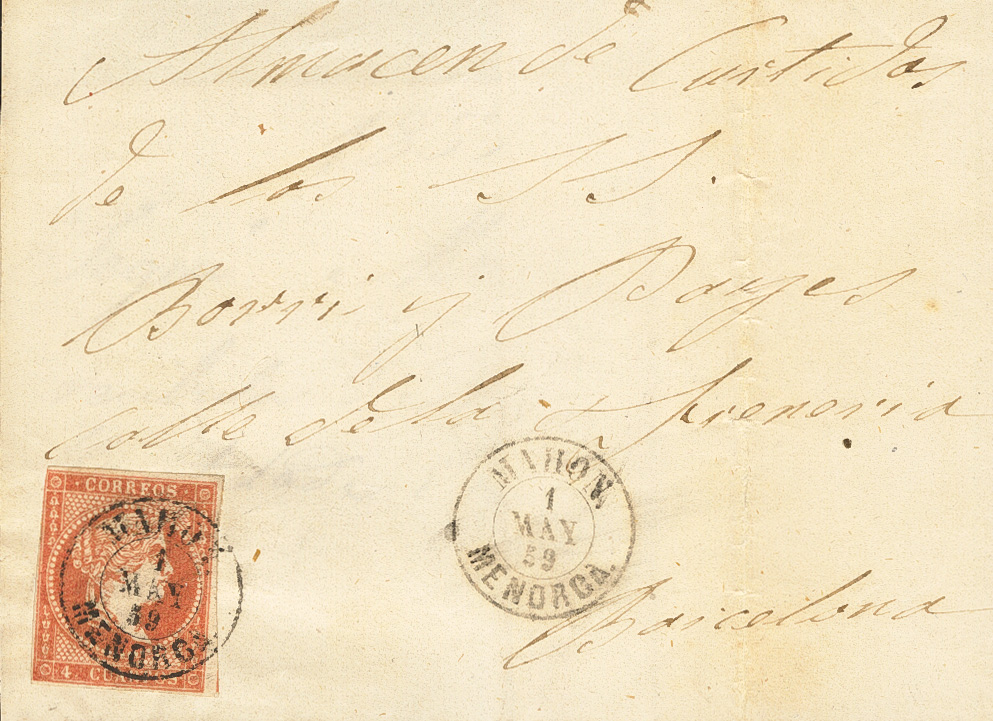 Almacen de Curtidos
de los SS.
Borri y Payes
Calle de la Freneria
CORREOS
MAHON
1
MAY
59
MENORCA
4 CUARTOS
MAHON
1
MAY
59
MENORCA.
Barcelona